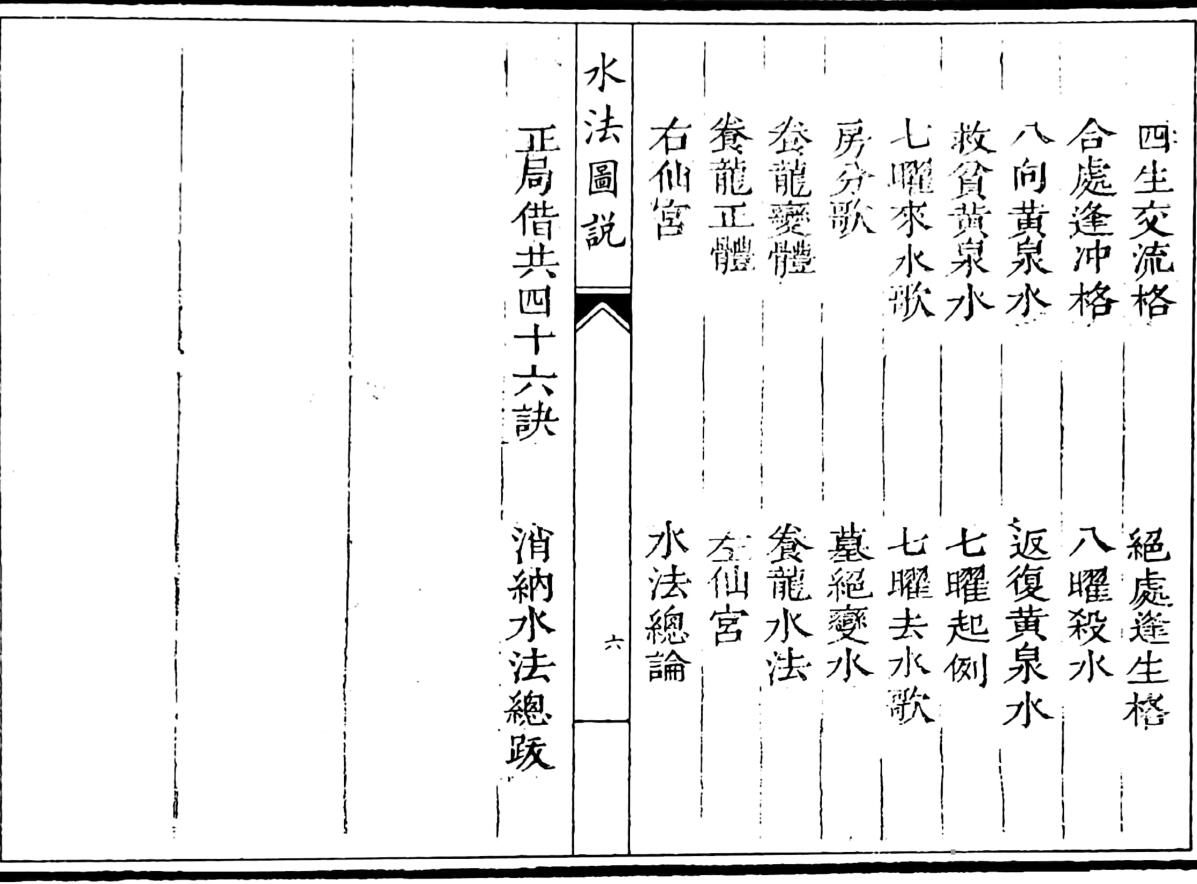 四生交流格　絕處逢生格
合處逢冲格　八曜殺水
八向黄泉水　返復黄泉水
救貧黄泉水　七曜起例
七曜來水歌　七曜去水歌
房分歌　墓絕變水
養龍變體　養龍水法
養龍正體　左仙宮
右仙宮　水法總論
水法圖説
六
正局借共四十六訣　消納水法總跋